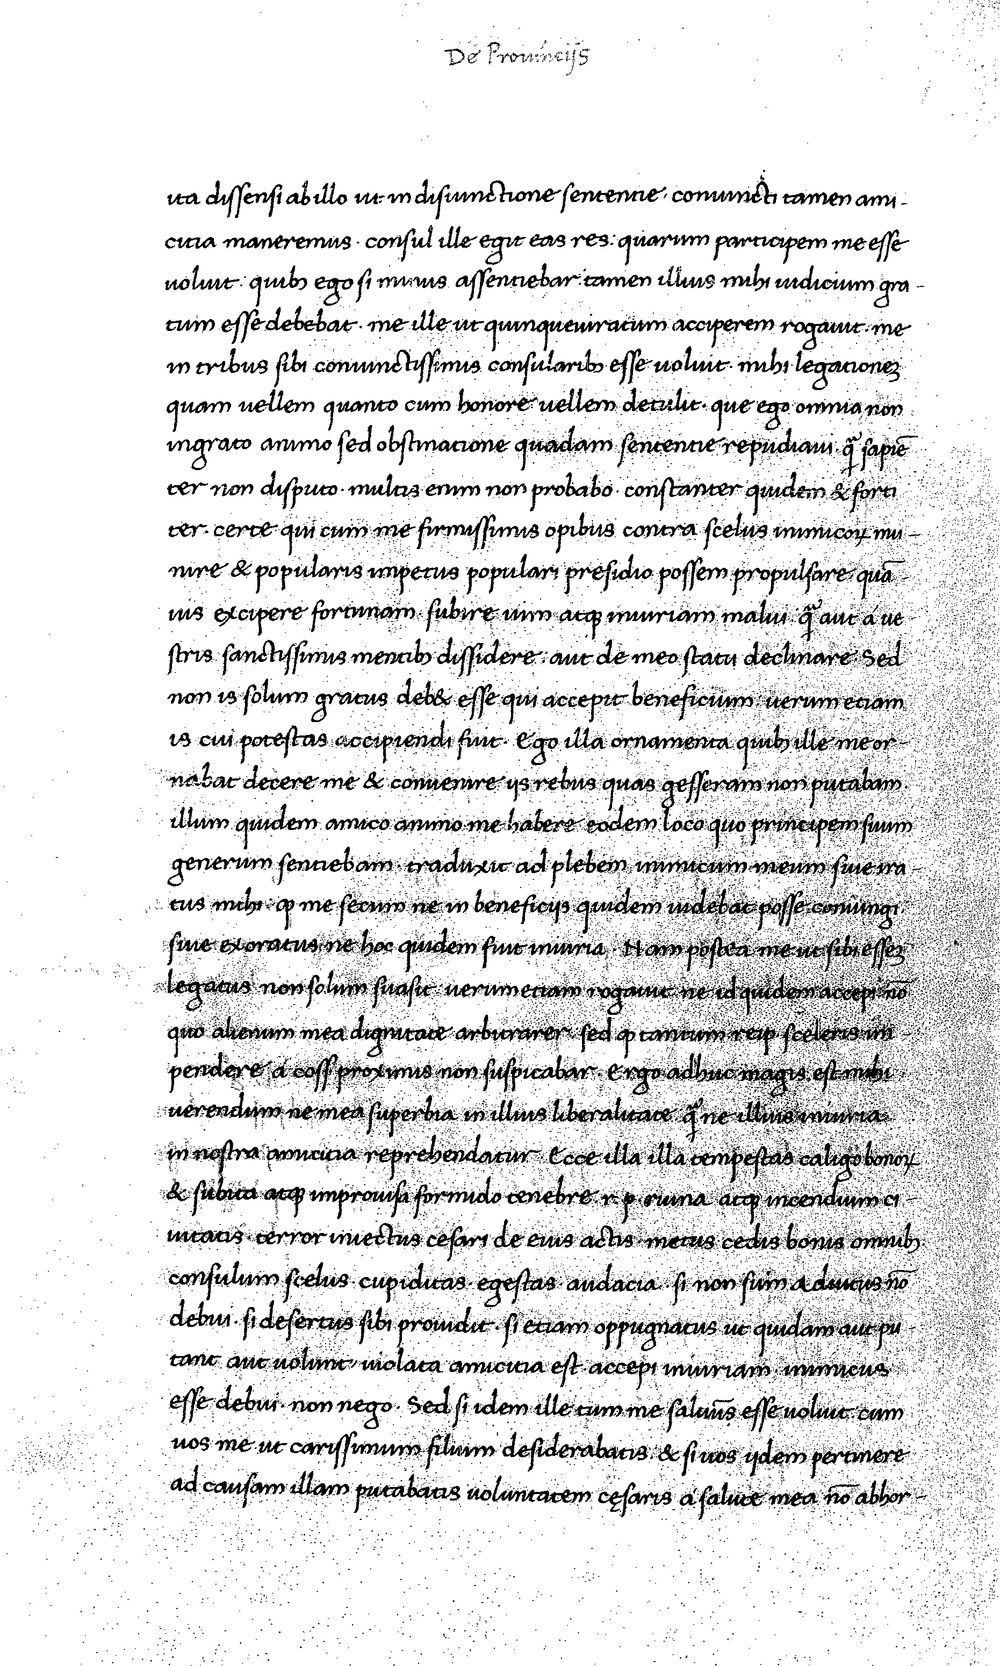 De Prouincijs
ita dissensi ab illo ut in disiunctione sententie · coniuncti tamen ami-
citia maneremus · consul ille egit eas res: quarum participem me esse
uoluit · quibȝ ego si minus assentiebar tamen illius mihi iudicium gra-
tum esse debebat · me ille ut quinqueuiratum acciperem rogauit · me
in tribus sibi coniunctissimis consularibȝ esse uoluit · mihi legationeȝ
quam uellem quanto cum honore uellem detulit · que ego omnia non
ingrato animo sed obstinatione quadam sententie repudiaui · q̄ȝ sapiē
ter non disputo · multis enim non probabo · constanter quidem & forti
ter · certe qui cum me firmissimis opibus contra scelus inimicoꝝ mu-
nire & popularis impetus populari presidio possem propulsare quā-
uis excipere fortunam · subire uim atqȝ iniuriam malui q̄ȝ aut a ue
stris sanctissimis mentibȝ dissidere · aut de meo statu declinare · Sed
non is solum gratus deb& esse qui accepit beneficium · uerum etiam
is cui potestas accipiendi fuit · Ego illa ornamenta quibȝ ille me or-
nabat decere me & conuenire ijs rebus quas gesseram non putabam ·
illum quidem amico animo me habere eodem loco quo principem suum
generum sentiebam · traduxit ad plebem inimicum meum siue ira-
tus mihi · ꝙ me secum ne in beneficijs quidem uidebat posse coniungi
siue exoratus ne hoc quidem fuit iniuria · Nam postea me ut sibi esseȝ
legatus non solum suasit · uerum etiam rogauit · ne id quidem accepi nō
quo alienum mea dignitate arbitrarer · sed ꝙ tantum reip sceleris im-
pendere a coss proximis non suspicabar · Ergo adhuc magis est mihi
uerendum ne mea superbia in illius liberalitate q̄ȝ ne illius iniuria
in nostra amicitia reprehendatur · Ecce illa illa tempestas caligo bonoꝝ
& subita atqȝ improuisa formido tenebre r · p · ruina atqȝ incendium ci-
uitatis · terror iniectus cesari de eius actis · metus cedis bonis omnibȝ
consulum scelus · cupiditas · egestas · audacia · si non sum adiutus nō
debui · si desertus sibi prouidit · si etiam oppugnatus ut quidam aut pu-
tant aut uolunt · uiolata amicitia est · accepi iniuriam · inimicus
esse debui · non nego · Sed si idem ille tum me saluūs esse uoluit cum
uos me ut carissimum filium desiderabatis · & si uos ijdem pertinere
ad causam illam putabatis uoluntatem cęsaris a salute mea nō abhor-